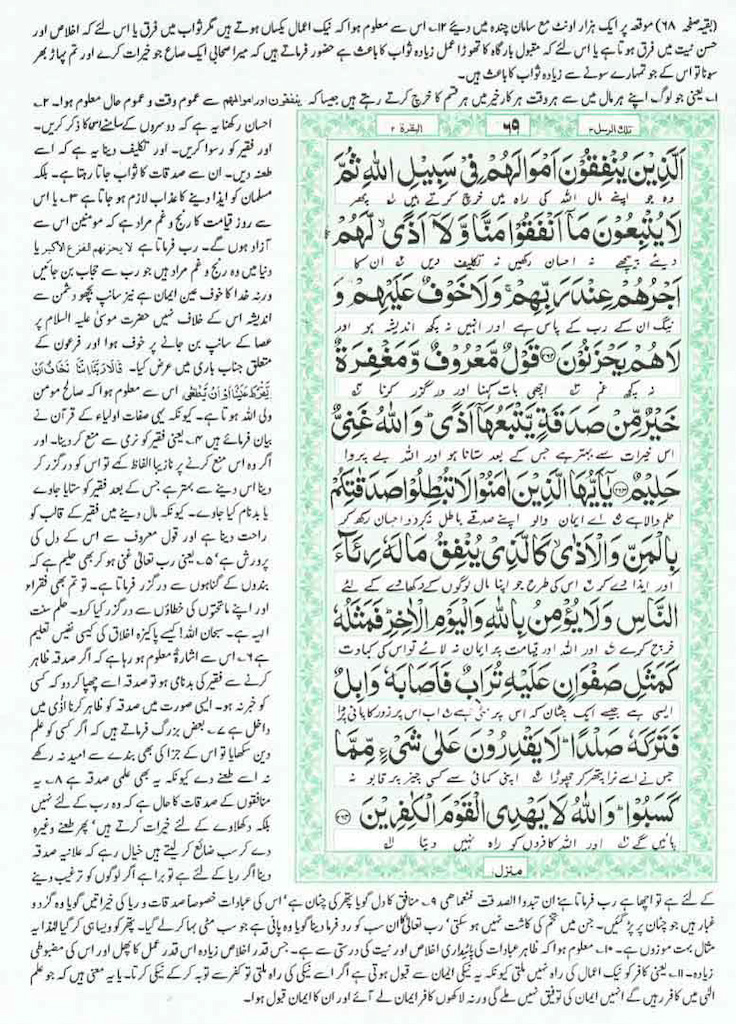 (بقیہ صفحہ ۶۸) موقعہ پر ایک ہزار اونٹ مع سامان چندہ میں دیئے ۱۲۔ اس سے معلوم ہوا کہ نیک اعمال یکساں ہوتے ہیں مگر ثواب میں فرق یا اس لئے کہ اخلاص اور
حسن نیت میں فرق ہوتا ہے یا اس لئے کہ مقبول بارگاہ کا تھوڑا عمل زیادہ ثواب کا باعث ہے حضور فرماتے ہیں کہ میرا صحابی ایک صاع جو خیرات کرے اور تم پہاڑ بھر
سونا تو اس کے جو تمہارے سونے سے زیادہ ثواب کا باعث ہیں۔
۱۔ یعنی جو لوگ اپنے ہر مال میں سے ہر وقت ہر کار خیر میں ہر قسم کا خرچ کرتے رہتے ہیں جیسا کہ ینفقون اور اموالھم سے عموم وقت و عموم حال معلوم ہوا۔ ۲۔
تلک الرسل ۳
۶۹
البقرة ۲
اَلَّذِيْنَ يُنْفِقُوْنَ اَمْوَالَهُمْ فِيْ سَبِيْلِ اللّٰهِ ثُمَّ
وہ جو اپنے مال اللہ کی راہ میں خرچ کرتے ہیں پھر
لَا يُتْبِعُوْنَ مَاۤ اَنْفَقُوْا مَنًّا وَّلَاۤ اَذًى لَّهُمْ
دیئے پیچھے نہ احسان رکھیں نہ تکلیف دیں ان کا
اَجْرُهُمْ عِنْدَ رَبِّهِمْ وَلَا خَوْفٌ عَلَيْهِمْ وَ
نیگ ان کے رب کے پاس ہے اور انہیں نہ کچھ اندیشہ ہو اور
لَا هُمْ يَحْزَنُوْنَ ۝۲۶۲ قَوْلٌ مَّعْرُوْفٌ وَّمَغْفِرَةٌ
نہ کچھ غم اچھی بات کہنا اور درگزر کرنا
خَيْرٌ مِّنْ صَدَقَةٍ يَّتْبَعُهَاۤ اَذًى ؕ وَاللّٰهُ غَنِيٌّ
اس خیرات سے بہتر ہے جس کے بعد ستانا ہو اور اللہ بے پروا
حَلِيْمٌ ۝۲۶۳ يٰۤاَيُّهَا الَّذِيْنَ اٰمَنُوْا لَا تُبْطِلُوْا صَدَقٰتِكُمْ
حلم والا ہے اے ایمان والو اپنے صدقے باطل نہ کر دو احسان رکھ کر
بِالْمَنِّ وَالْاَذٰى كَالَّذِيْ يُنْفِقُ مَالَهٗ رِئَآءَ
اور ایذا دے کر اس کی طرح جو اپنا مال لوگوں کے دکھاوے کے لئے
النَّاسِ وَلَا يُؤْمِنُ بِاللّٰهِ وَالْيَوْمِ الْاٰخِرِ فَمَثَلُهٗ
خرچ کرے اور اللہ اور قیامت پر ایمان نہ لائے تو اس کی کہاوت
كَمَثَلِ صَفْوَانٍ عَلَيْهِ تُرَابٌ فَاَصَابَهٗ وَابِلٌ
ایسی ہے جیسے ایک چٹان کہ اس پر مٹی ہے اب اس پر زور کا پانی پڑا
فَتَرَكَهٗ صَلْدًا ؕ لَا يَقْدِرُوْنَ عَلٰى شَيْءٍ مِّمَّا
جس نے اسے نرا پتھر کر چھوڑا اپنی کمائی سے کسی چیز پر قابو نہ
كَسَبُوْا ؕ وَاللّٰهُ لَا يَهْدِى الْقَوْمَ الْكٰفِرِيْنَ ۝۲۶۴
پائیں گے اور اللہ کافروں کو راہ نہیں دیتا
منزل ۱
احسان رکھنا یہ ہے کہ دوسروں کے سامنے اس کا ذکر کریں۔
اور فقیر کو رسوا کریں۔ اور تکلیف دینا یہ ہے کہ اسے
طعنہ دیں۔ ان سے صدقات کا ثواب جاتا رہتا ہے۔ بلکہ
مسلمان کو ایذا دینے کا عذاب لازم ہو جاتا ہے ۳۔ یا اس
سے روز قیامت کا رنج و غم مراد ہے کہ مومنین اس سے
آزاد ہوں گے۔ رب فرماتا ہے لا یحزنھم الفزع الاکبر یا
دنیا میں وہ رنج و غم مراد ہیں جو رب سے حجاب بن جائیں
ورنہ خدا کا خوف عین ایمان ہے نیز سانپ بچھو دشمن سے
اندیشہ اس کے خلاف نہیں حضرت موسیٰ علیہ السلام پر
عصا کے سانپ بن جانے پر خوف ہوا اور فرعون کے
متعلق جناب باری میں عرض کیا۔ قَالَا رَبَّنَا اِنَّنَا نَخَافُ اَنْ
يَّفْرُطَ عَلَيْنَا اَوْ اَنْ يَّطْغٰى اس سے معلوم ہوا کہ صالح مومن
ولی اللہ ہوتا ہے۔ کیونکہ یہی صفات اولیاء کے قرآن نے
بیان فرمائے ہیں ۴۔ یعنی فقیر کو نرمی سے منع کر دینا۔ اور
اگر وہ اس منع کرنے پر نازیبا الفاظ کہے تو اس کو درگزر کر
دینا اس دینے سے بہتر ہے جس کے بعد فقیر کو ستایا جاوے
یا بدنام کیا جاوے۔ کیونکہ مال دینے میں فقیر کے قالب کو
راحت دینا ہے اور قول معروف سے اس کے دل کی
پرورش ہے ۵۔ یعنی رب تعالیٰ غنی ہو کر بھی حلیم ہے کہ
بندوں کے گناہوں سے درگزر فرماتا ہے۔ تو تم بھی فقراء
اور اپنے ماتحتوں کی خطاؤں سے درگزر کیا کرو۔ حلم سنت
الہیہ ہے۔ سبحان اللہ! کیسے پاکیزہ اخلاق کی کیسی نفیس تعلیم
ہے ۶۔ اس سے اشارۃ معلوم ہو رہا ہے کہ اگر صدقہ ظاہر
کرنے سے فقیر کی بدنامی ہو تو صدقہ اسے چھپا کر دو کہ کسی
کو خبر نہ ہو۔ ایسی صورت میں صدقہ کو ظاہر کرنا اذی میں
داخل ہے ۷۔ بعض بزرگ فرماتے ہیں کہ اگر کسی کو علم
دین سکھایا تو اس کے جزا کی بھی بندے سے امید نہ رکھے
نہ اسے طعنے دے کیونکہ یہ بھی علمی صدقہ ہے ۸۔ یہ
منافقوں کے صدقات کا حال ہے کہ وہ رب کے لئے نہیں
بلکہ دکھلاوے کے لئے خیرات کرتے ہیں پھر طعنے وغیرہ
دے کر سب ضائع کر لیتے ہیں خیال رہے کہ علانیہ صدقہ
دینا اگر ریا کے لئے ہے تو برا ہے اگر لوگوں کو ترغیب دینے
کے لئے ہے تو اچھا ہے رب فرماتا ہے ان تبدوا الصدقت فنعماھی ۹۔ منافق کا دل گویا پتھر کی چٹان ہے اس کی عبادات خصوصاً صدقات و ریا کی خیراتیں گویا وہ گرد و
غبار ہیں جو چٹان پر پڑ گئیں۔ جن میں تخم کی کاشت نہیں ہو سکتی رب تعالیٰ کا ان سب کو رد فرما دینا گویا وہ پانی ہے جو سب مٹی بہا کر لے گیا۔ پتھر کو ویسا ہی کر گیا لہٰذا یہ
مثال بہت موزوں ہے۔ ۱۰۔ معلوم ہوا کہ ظاہر عبادات کی پائیداری اخلاص اور نیت کی درستی سے ہے۔ جس قدر اخلاص زیادہ اس قدر عمل کا پھل اور اس کی مضبوطی
زیادہ۔ ۱۱۔ یعنی کافر کو نیک اعمال کی راہ نہیں ملتی کیونکہ یہ نیکی ایمان سے قبول ہوتی ہے اگر اسے نیکی کی راہ ملتی تو کفر سے توبہ کر کے نیکی کرتا۔ یا یہ معنی ہیں کہ جو علم
الٰہی میں کافر رہیں گے انہیں ایمان کی توفیق نہیں ملے گی ورنہ لاکھوں کافر ایمان لے آئے اور ان کا ایمان قبول ہوا۔